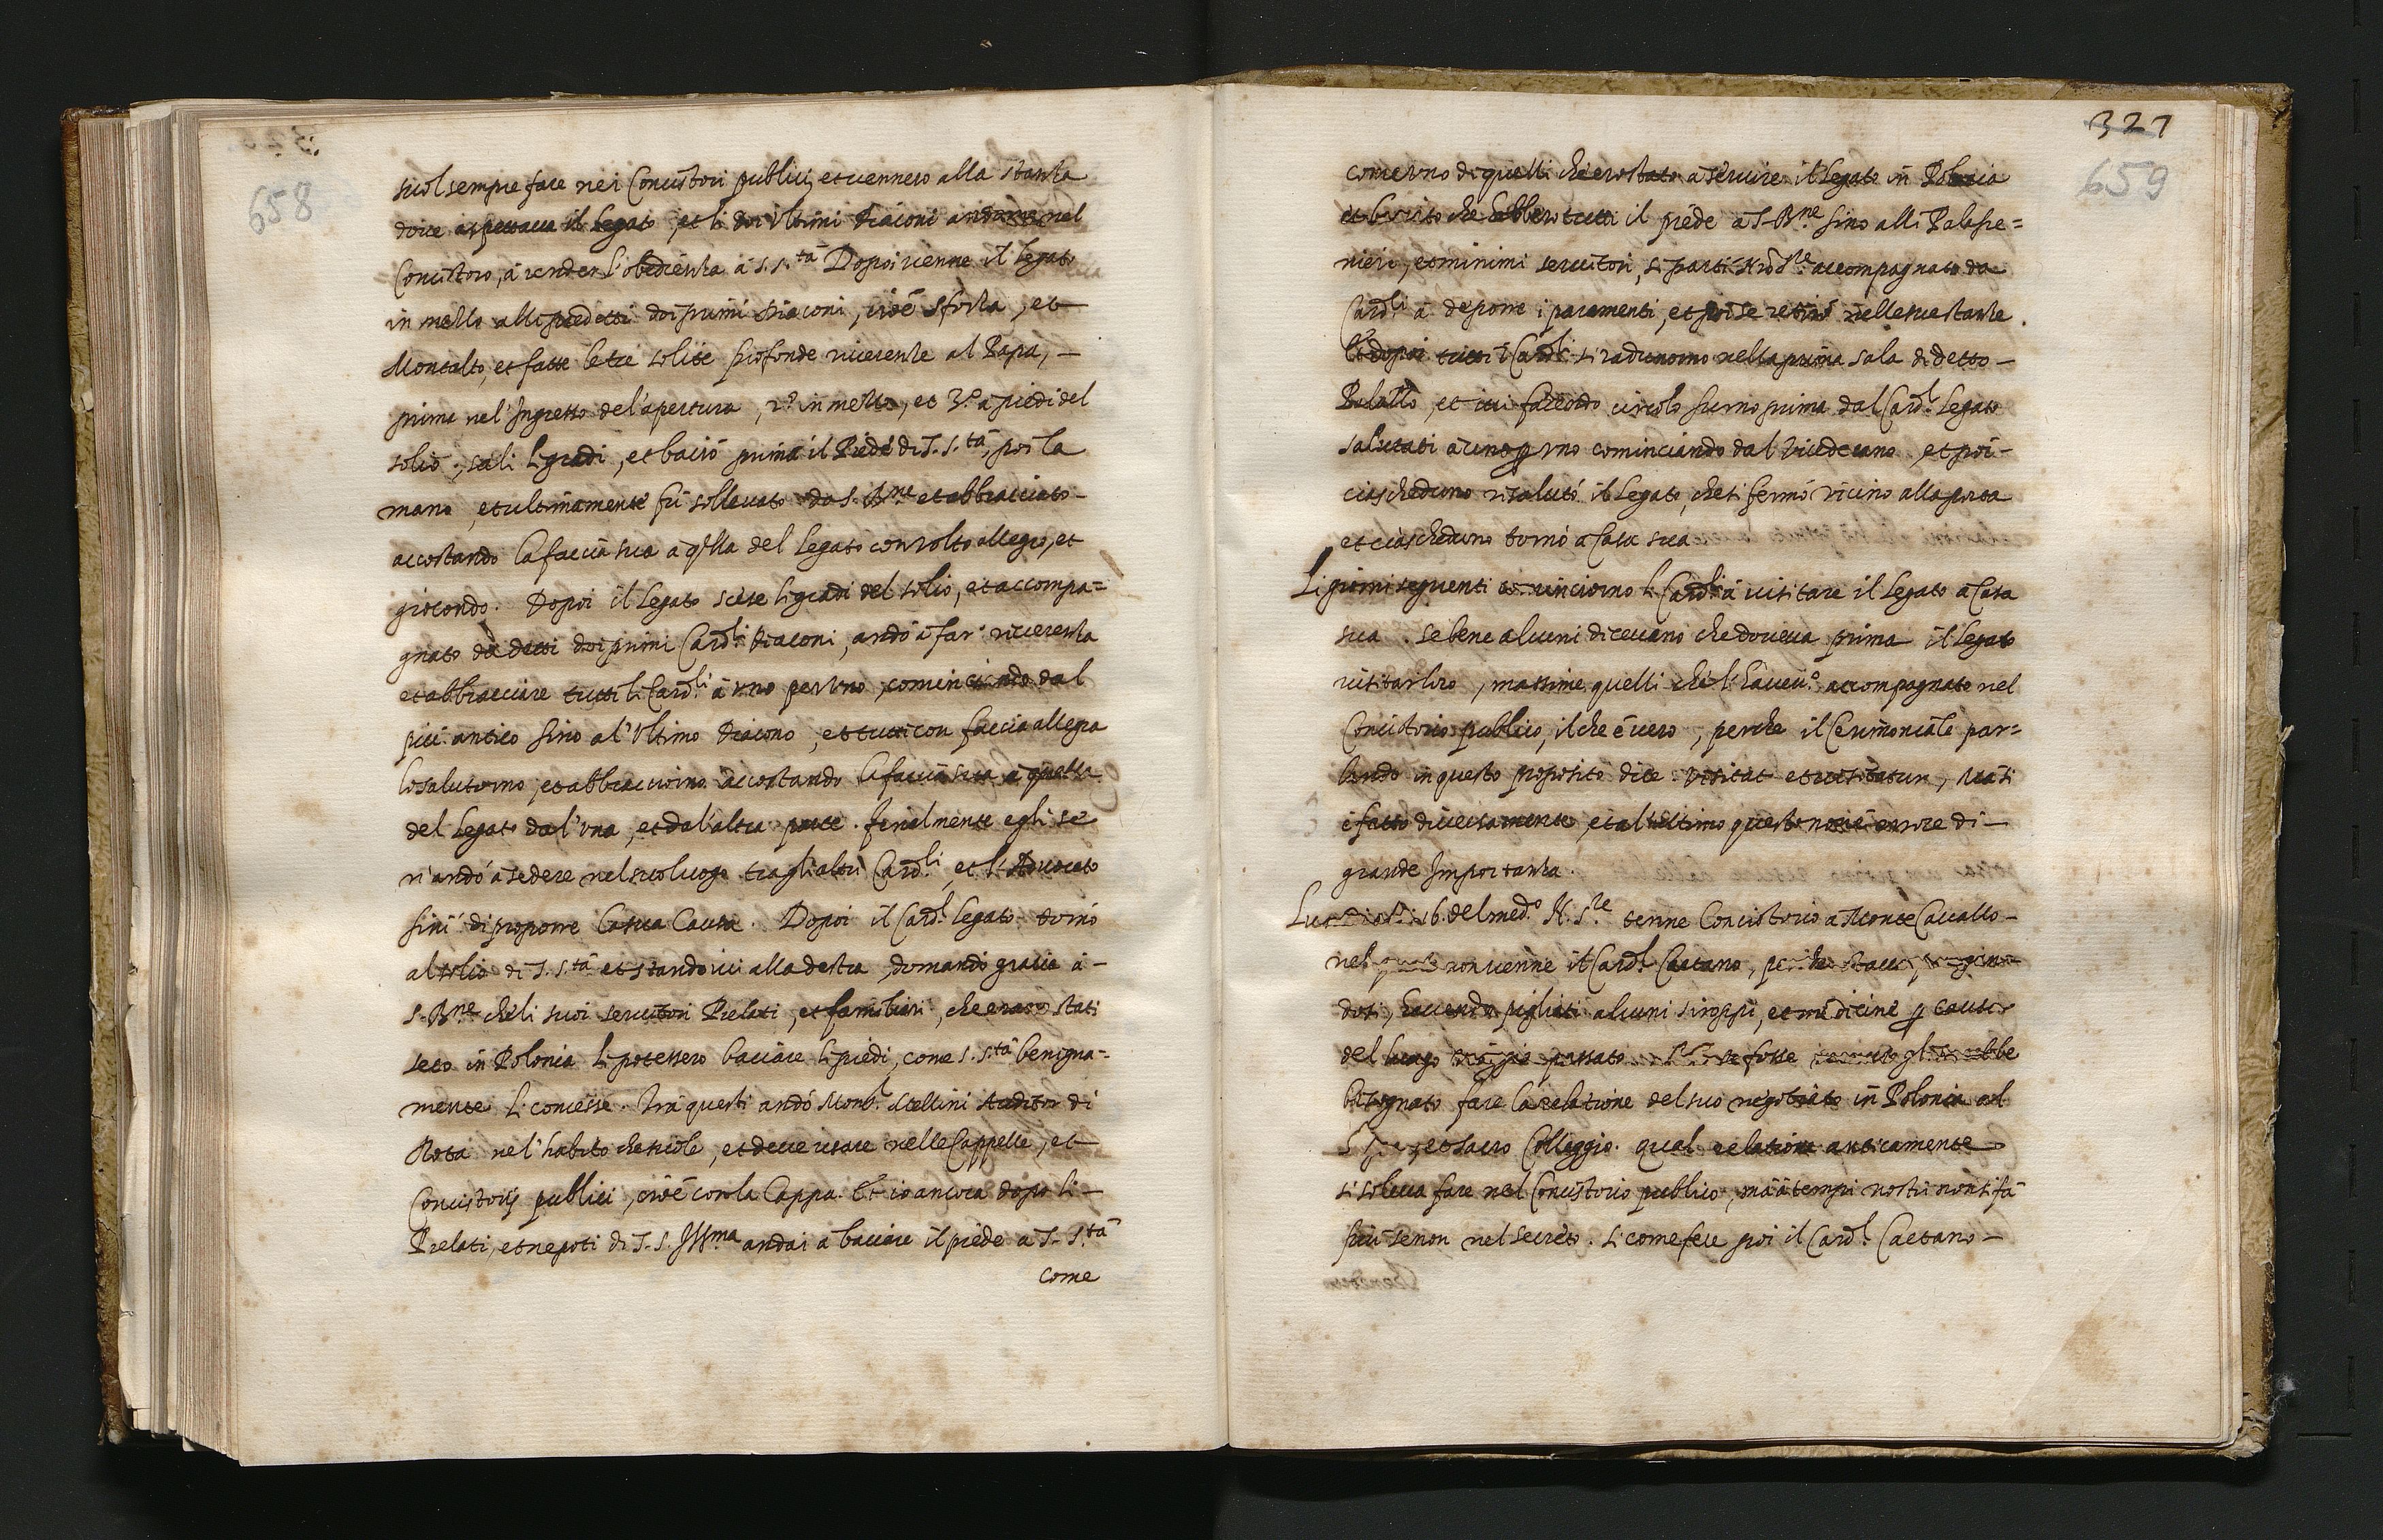 658
suol sempre fare nei Concistori publici, et uennero alla stanza
doue aspettaua il Legato et li doi Vltimi Diaconi andorno nel
Concistoro, à render l'obedienza à S. S.tà Dopoi uienne il Legato
in mezzo alli predetti doi primi Diaconi, cioè sforza, et
Montalto, et fatte le tre solite profonde riuerenze al Papa, —
prima nel'Ingresso del'apertura, 2.ª in mezzo, et 3.º a piedi del
solio, salì li gradi, et baciò prima il Piede di S. S.tà, poi la
mano, et ultimamente fù solleuato da S. B.ne et abbracciato —
accostando la faccia sua a q̃lla del Legato con uolto allegro, et
giocondo. Dopoi il Legato scese li gradi del solio, et accompa=
gnato da detti doi primi Card.li Diaconi, andò à far riuerenza
et abbracciare tutti li Card.li à vno per vno, cominciando dal
più antico sino al'Vltimo Diacono, et tutti con faccia allegra
lo salutorno, et abbracciorno accostando la faccia sua à quella
del Legato dal'vna, et dal'altra parte. finalmente egli se
n'andò à sedere nel suo luogo tra gli altri Card.li, et l'Aduocato
finì di proporre la sua Causa. Dopoi il Card.l Legato tornò
al solio di S. S.tà et stando iui alla destra, domandò gratia à —
S. B.ne che li suoi seruitori Prelati, et familiari, che erano stati
seco in Polonia li potessero baciare li piedi, come S. S.tà benigna=
mente li concesse. Trà questi andò Mons.r Mellini Auditor di
Rota nel'habito che suole, et deue usare nelle Cappelle, et
Concistorij publici, cioè con la Cappa. Et io ancora dopo li —
Prelati, et nepoti di S. S. Ill.ma andai à baciare il piede a S. S.tà
come
321
659
come vno di quelli che ero stato à seruire il Legato in Polonia
et baciato che hebbero tutti il piede à S. B.ne sino alli Palafre=
nieri, et minimi seruitori, si partì N.ro S.re accompagnato da
Card.li à deporre i paramenti, et poi se retirò nelle sue stanze.
Et dopoi tutti i Card.li si radunorno nella prima sala di detto —
Palazzo, et iui facendo circolo furno prima dal Card.l Legato
salutati à uno p vno cominciando dal Vicedecano et poi —
ciascheduno risalutò il Legato, che si fermò uicino alla porta
et ciascheduno tornò a Casa sua
Li giorni seguenti cominciorno li Card.li à uisitare il Legato a Casa
sua. Se bene alcuni diceuano che doueua prima il Legato
uisitar loro, massime quelli che l'haueu.º accompagnato nel
Concistorio publico, il che è uero, perche il Cerimoniale par=
lando in questo proposito dice: visitat et uisitatur, Mà si
è fatto diuersamente, et al'ultimo questo non è errore di —
grande Importanza.
16. del med.º N. S.re tenne Concistorio a Monte Cauallo —
nel non uenne il Card.l Caetano, perche staua
dosi, hauendo pigliati alcuni siroppi, et medicine p causa
del luogo passato se fosse
bisognato fare la relatione del suo negotiato in Polonia al
et sacro Colleggio. qual relatione anticamente
si soleua fare nel Concistorio publico, mà à tempi nostri non si fà
più se non nel secreto. si come fece poi il Card.l Caetano —